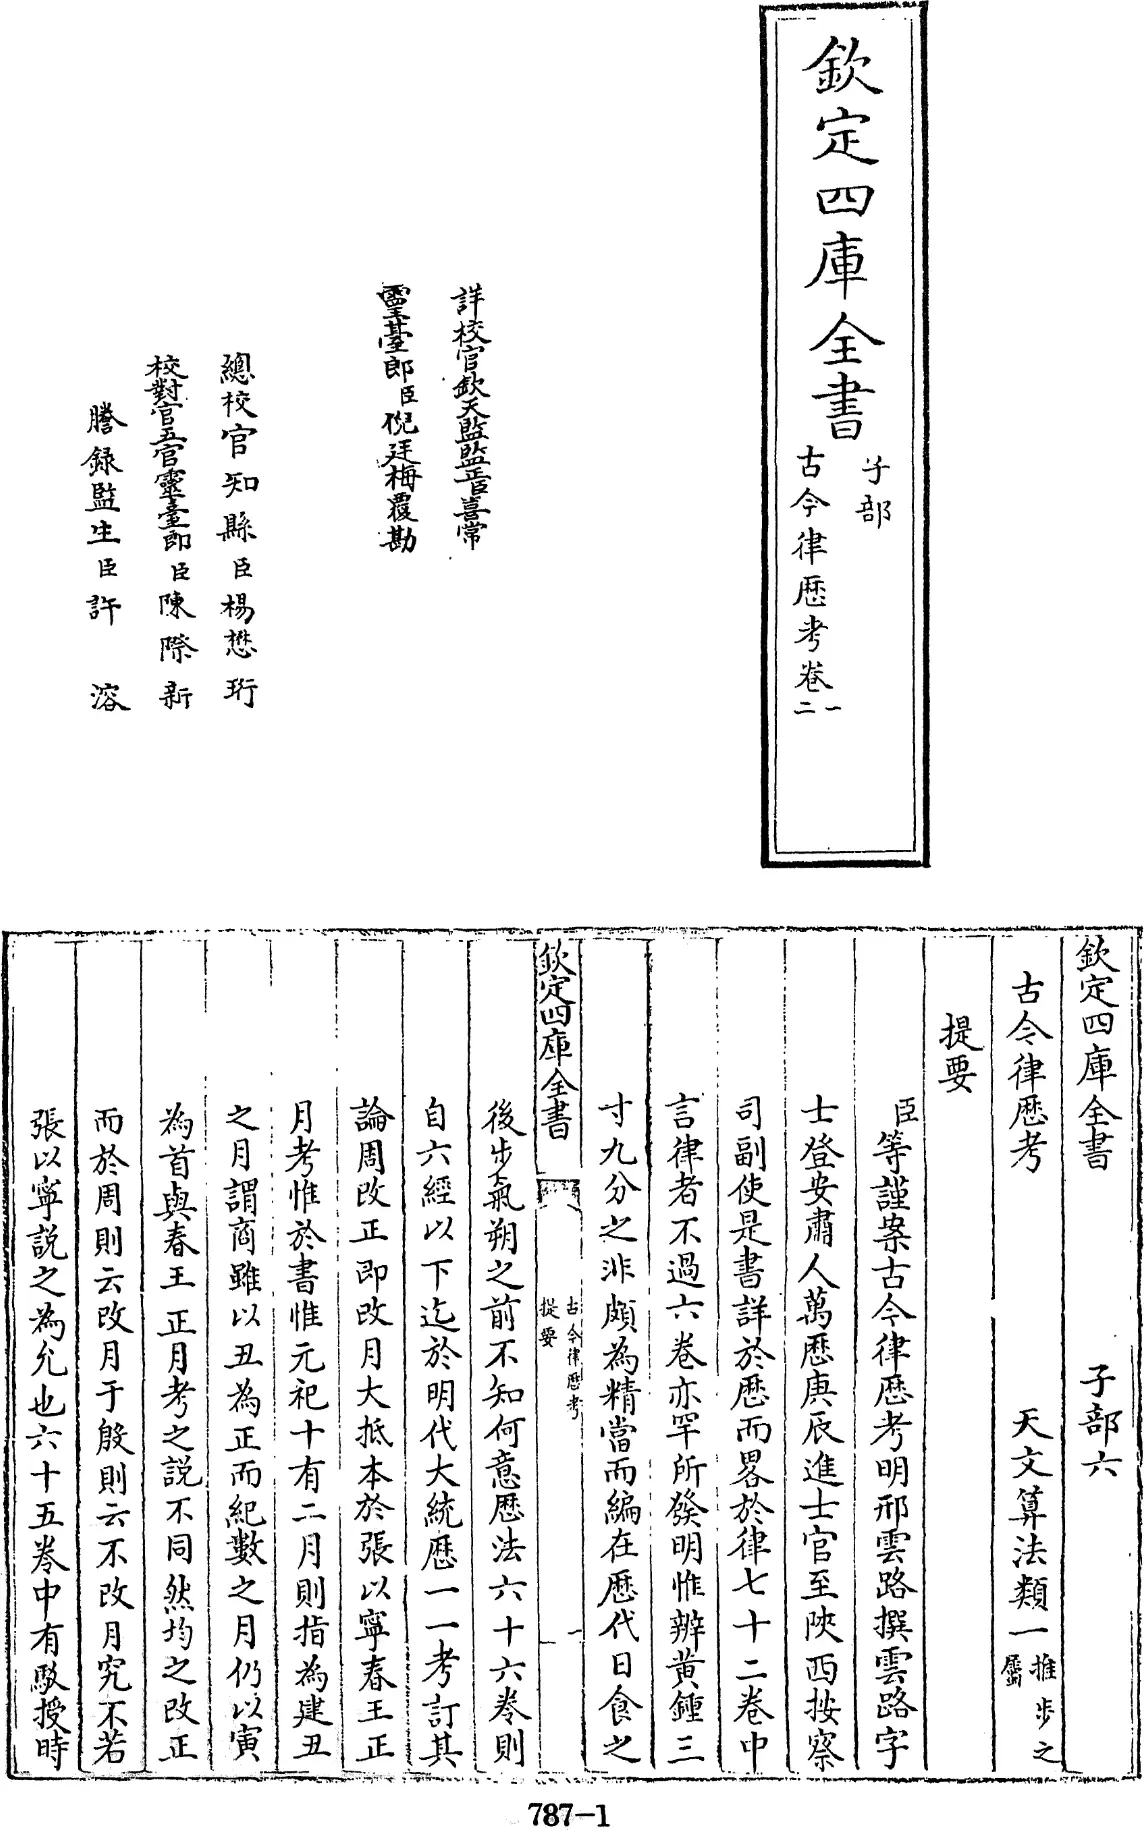 欽定四庫全書
子部
古今律歷考卷一二
詳校官欽天監監正臣喜常
靈臺郎臣倪廷梅覆勘
總校官知縣臣楊懋珩
校對官五官靈臺郎臣陳際新
謄錄監生臣許溶
欽定四庫全書 子部六
古今律歷考 天文算法類一推步之屬
提要
臣等謹案古今律歷考明邢雲路撰雲路字
士登安肅人萬歷庚辰進士官至陜西按察
司副使是書詳於歷而畧於律七十二卷中
言律者不過六卷亦罕所發明惟辨黃鍾三
寸九分之非頗為精當而編在歷代日食之
欽定四庫全書
古今律歷考
提要
一
後步氣朔之前不知何意歷法六十六卷則
自六經以下迄於明代大統歷一一考訂其
論周改正即改月大抵本於張以寧春王正
月考惟於書惟元祀十有二月則指為建丑
之月謂商雖以丑為正而紀數之月仍以寅
為首與春王正月考之說不同然均之改正
而於周則云改月于殷則云不改月究不若
張以寧說之為允也六十五卷中有駁授時
787-1